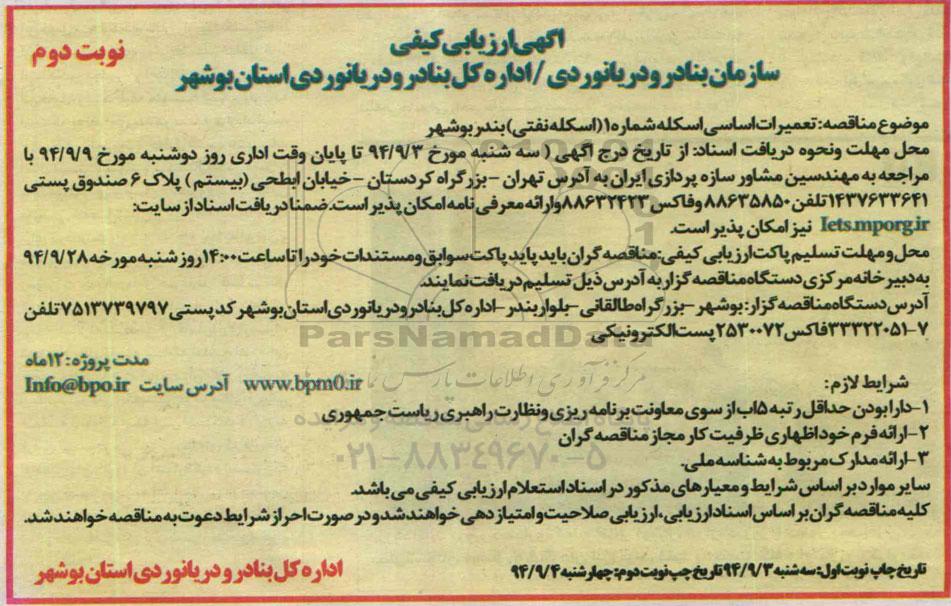 آگهی ارزیابی کیفی
نوبت دوم
سازمان بنادر و دریانوردی / اداره کل بنادر و دریانوردی استان بوشهر
موضوع مناقصه: تعمیرات اساسی اسکله شماره ۱ (اسکله نفتی) بندر بوشهر
محل مهلت ونحوه دریافت اسناد: از تاریخ درج اگهی ( سه شنبه مورخ ۹۴/۹/۳ تا پایان وقت اداری روز دوشنبه مورخ ۹۴/۹/۹ با
مراجعه به مهندسین مشاور سازه پردازی ایران به آدرس تهران – بزرگراه کردستان – خیابان ابطحی (بیستم) پلاک ۶ صندوق پستی
۱۴۳۷۶۳۳۶۴۱ تلفن ۸۸۶۳۵۸۵۰ وفاکس ۸۸۶۳۲۴۲۳ وارائه معرفی نامه امکان پذیر است. ضمنا دریافت اسناد از سایت:
Iets.mporg.ir نیز امکان پذیر است.
محل و مهلت تسلیم پاکت ارزیابی کیفی: مناقصه گران باید پاید پاکت سوابق و مستندات خود را تا ساعت ۱۴:۰۰ روز شنبه مورخه ۹۴/۹/۲۸
به دبیرخانه مرکزی دستگاه مناقصه گزار به آدرس ذیل تسلیم دریافت نمایند.
آدرس دستگاه مناقصه گزار: بوشهر – بزرگراه طالقانی – بلوار بندر – اداره کل بنادر و دریانوردی استان بوشهر کد پستی ۷۵۱۳۷۳۹۷۹۷ تلفن
۷-۳۳۳۲۲۰۵۱ فاکس ۲۵۳۰۰۷۲ پست الکترونیکی
مدت پروژه: ۱۲ ماه
شرایط لازم: www.bpm0.ir آدرس سایت Info@bpo.ir
۱- دارا بودن حداقل رتبه ۵ اب از سوی معاونت برنامه ریزی ونظارت راهبری ریاست جمهوری
۲- ارائه فرم خود اظهاری ظرفیت کار مجاز مناقصه گران
۳- ارائه مدارک مربوط به شناسه ملی.
سایر موارد بر اساس شرایط و معیارهای مذکور در اسناد استعلام ارزیابی کیفی می باشد.
کلیه مناقصه گران بر اساس اسناد ارزیابی، ارزیابی صلاحیت و امتیاز دهی خواهند شد و در صورت احراز شرایط دعوت به مناقصه خواهند شد.
تاریخ چاپ نوبت اول: سه شنبه ۹۴/۹/۳ تاریخ چپ نوبت دوم: چهارشنبه ۹۴/۹/۴
اداره کل بنادر و دریانوردی استان بوشهر
ParsNamadData
مرکز فرآوری اطلاعات پارس نماد
۰۲۱-۸۸۳۴۹۶۷۰-۵